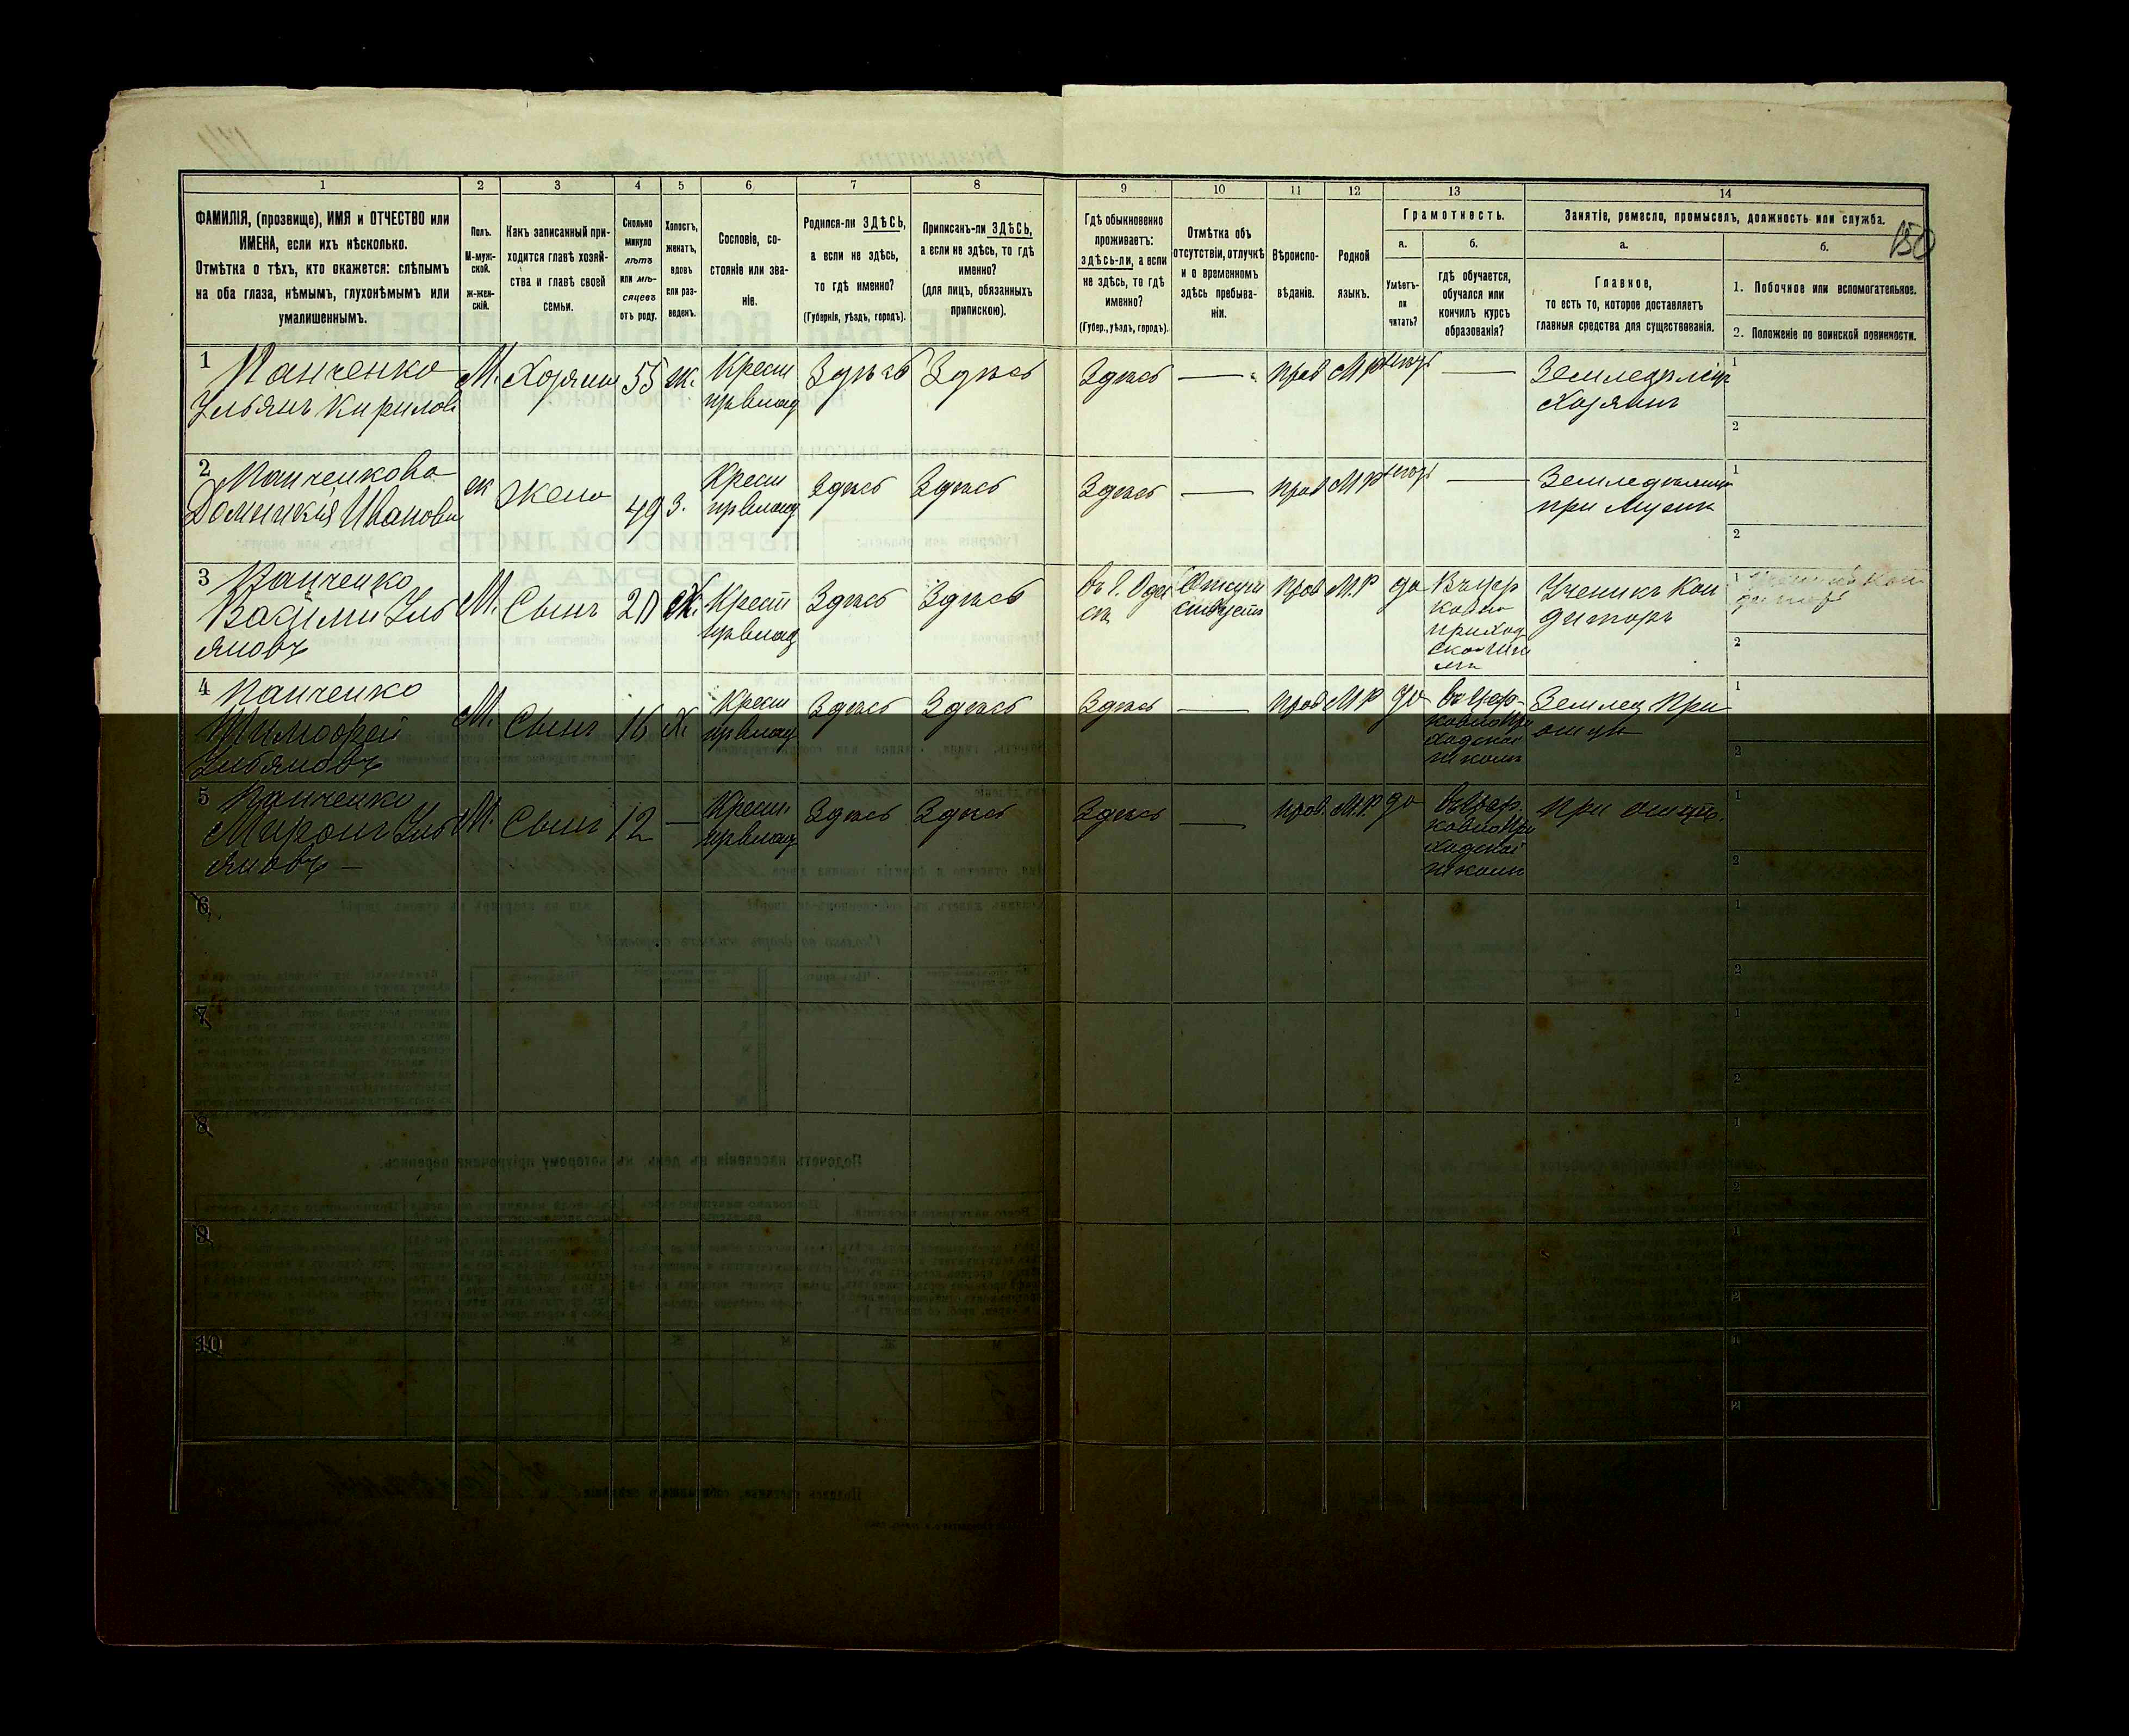 150
1 2 3 4 5 6 7 8 9 10 11 12 13 14
ФАМИЛІЯ, (прозвище), ИМЯ и ОТЧЕСТВО или
ИМЕНА, если ихъ нѣсколько.
Отмѣтка о тѣхъ, кто окажется: слѣпымъ
на оба глаза, нѣмымъ, глухонѣмымъ или
умалишеннымъ.
Полъ.
М-муж-
ской.
Ж-жен-
скій.
Какъ записанный при-
ходится главѣ хозяй-
ства и главѣ своей
семьи.
Сколько
минуло
лѣтъ
или мѣ-
сяцевъ
отъ роду.
Холостъ,
женатъ,
вдовъ
или раз-
веденъ.
Сословіе, со-
стояніе или зва-
ніе.
Родился-ли ЗДѢСЬ,
а если не здѣсь,
то гдѣ именно?
(Губернія, уѣздъ, городъ).
Приписанъ-ли ЗДѢСЬ,
а если не здѣсь, то гдѣ
именно?
(для лицъ, обязанныхъ
припискою).
Гдѣ обыкновенно
проживаетъ:
здѣсь-ли, а если
не здѣсь, то гдѣ
именно?
(Губер., уѣздъ, городъ).
Отмѣтка объ
отсутствіи, отлучкѣ
и о временномъ
здѣсь пребыва-
ніи.
Вѣроиспо-
вѣданіе.
Родной
языкъ.
Грамотность.
а.
Умѣетъ-
ли
читать?
б.
гдѣ обучается,
обучался или
кончилъ курсъ
образованія?
Занятіе, ремесло, промыселъ, должность или служба.
а.
Главное,
то есть то, которое доставляетъ
главныя средства для существованія.
б.
1. Побочное или вспомогательное.
2. Положеніе по воинской повинности.
1 Панченко
Ульянъ Кирилов
М. Хозяинъ 55 ж.
Крест
Здѣсь Здѣсь Здѣсь — прав М р —
Земледѣлец
Хозяинъ
1
2
2 Панченкова
Домникія Иванова
ж Жена 49 З.
Крест
Здѣсь Здѣсь Здѣсь — прав М р —
при мужѣ
1
2
3 Панченко
Василий Уль
яновъ
М. Сынъ 20 Ж.
Крест
Здѣсь Здѣсь
въ г. Одес
сѣ
прав М. Р да
Въ цер
ковно
приход
Ученикъ Кон
дитора
1
2
4 Панченко
Тимофей
Ульяновъ
М. Сынъ 16 Х.
Крест
Здѣсь Здѣсь Здѣсь — прав М Р да
въ цер-
ковно при
ходской
школѣ
Землед. При
отцѣ
1
2
5 Панченко
Миронъ Уль
яновъ —
М. Сынъ 12 —
Крест
Здѣсь Здѣсь Здѣсь — прав. М. Р да
въ цер.
ковно при
ходской
школѣ
при отцѣ.
1
2
6
1
2
7
1
2
8
1
2
9
1
2
10
1
2